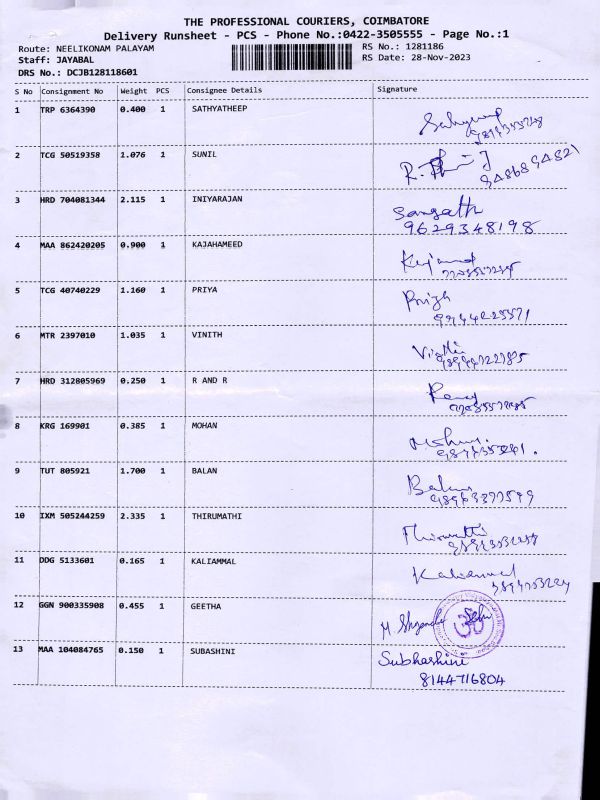 THE PROFESSIONAL COURIERS, COIMBATORE
Delivery Runsheet - PCS - Phone No.:0422-3505555 - Page No.:1
Route: NEELIKONAM PALAYAM RS No.: 1281186
Staff: JAYABAL RS Date: 28-Nov-2023
DRS No.: DCJB128118601
S No Consignment No Weight PCS Consignee Details Signature
1 TRP 6364390 0.400 1 SATHYATHEEP
2 TCG 50519358 1.076 1 SUNIL
3 HRD 704081344 2.115 1 INIYARAJAN Sangath
9629348198
4 MAA 862420205 0.900 1 KAJAHAMEED
5 TCG 40740229 1.160 1 PRIYA
6 MTR 2397010 1.035 1 VINITH
7 HRD 312805969 0.250 1 R AND R
8 KRG 169901 0.385 1 MOHAN
9 TUT 805921 1.700 1 BALAN
10 IXM 505244259 2.335 1 THIRUMATHI Thirumathi
11 DDG 5133601 0.165 1 KALIAMMAL
12 GGN 900335908 0.455 1 GEETHA
13 MAA 104084765 0.150 1 SUBASHINI Subhashini
8144716804